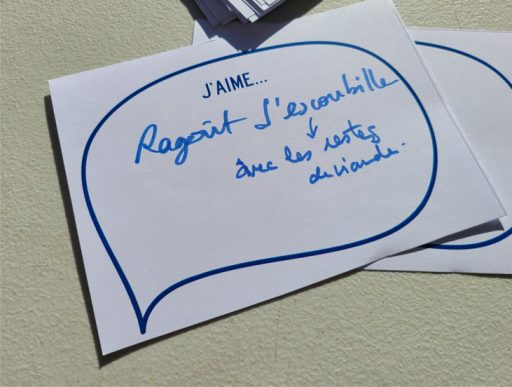 J'AIME...
Ragoût d'escoubille
↓
avec les restes
de viande.